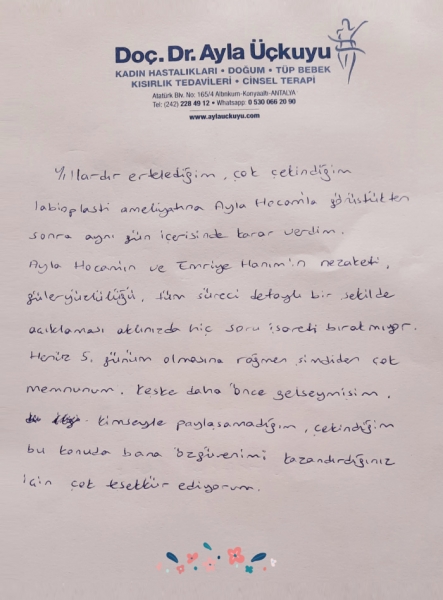 Doç. Dr. Ayla Üçkuyu
KADIN HASTALIKLARI • DOĞUM • TÜP BEBEK
KISIRLIK TEDAVİLERİ • CİNSEL TERAPİ
Atatürk Blv. No: 165/4 Altınkum-Konyaaltı-ANTALYA
Tel: (242) 228 49 12 • Whatsapp: 0 530 066 20 90
www.aylauckuyu.com
Yıllardır ertelediğim, çok çekindiğim
labioplasti ameliyatına Ayla Hocamla görüştükten
sonra aynı gün içerisinde karar verdim.
Ayla Hocamın ve Emriye Hanım'ın nezaketi,
güleryüzlülüğü, tüm süreci detaylı bir şekilde
açıklaması aklınızda hiç soru işareti bırakmıyor.
Henüz 5. günüm olmasına rağmen şimdiden çok
memnunum. Keşke daha önce gelseymişim.
kimseyle paylaşamadığım, çekindiğim
bu konuda bana özgüvenimi kazandırdığınız
için çok teşekkür ediyorum.